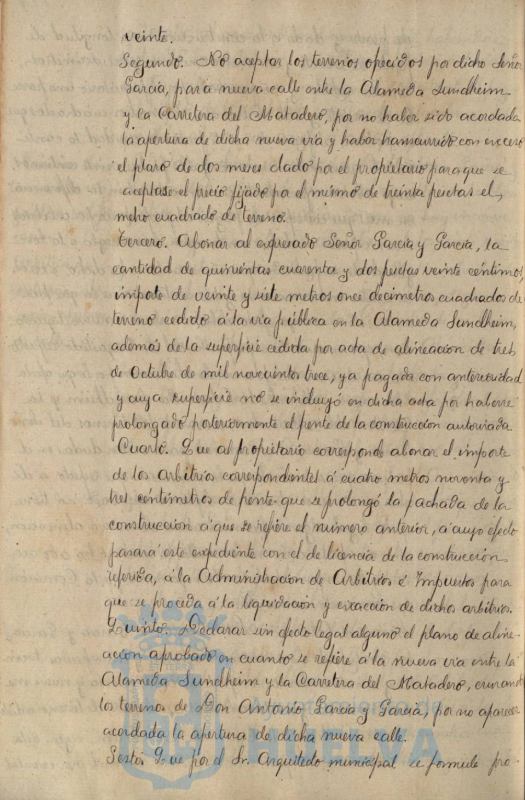 veinte.
Segundo. No aceptar los terrenos ofrecidos por dicho Señor
García, para nueva calle entre la Alameda Sundheim
y la Carretera del Matadero, por no haber sido acordada
la apertura de dicha nueva vía y haber transcurrido con exceso
el plazo de dos meses dado por el propietario para que se
aceptase el precio fijado por el mismo de treinta pesetas el
metro cuadrado de terreno.
Tercero. Abonar al expresado Señor García y García, la
cantidad de quinientas cuarenta y dos pesetas veinte céntimos,
importe de veinte y siete metros once decímetros cuadrados de
terreno cedido á la vía pública en la Alameda Sundheim,
además de la superficie cedida por acta de alineación de tres
de Octubre de mil novecientos trece, ya pagada con anterioridad
y cuya superficie no se incluyó en dicha acta por haberse
prolongado posteriormente el frente de la construcción autorizada
Cuarto. Que al propietario corresponde abonar el importe
de los arbitrios correspondientes á cuatro metros noventa y
tres centímetros de frente que se prolongó la fachada de la
construcción á que se refiere el número anterior, á cuyo efecto
pasará este expediente con el de licencia de la construcción
referida, á la Administración de Arbitrios é Impuestos para
que se proceda á la liquidación y exacción de dichos arbitrios.
Quinto. Declarar sin efecto legal alguno el plano de aline-
ación aprobado en cuanto se refiere á la nueva vía entre la
Alameda Sundheim y la Carretera del Matadero, cruzando
los terrenos de Don Antonio García y García, por no aparecer
acordada la apertura de dicha nueva calle.
Sexto. Que por el Sr. Arquitecto municipal se formule pro-
HUELVA